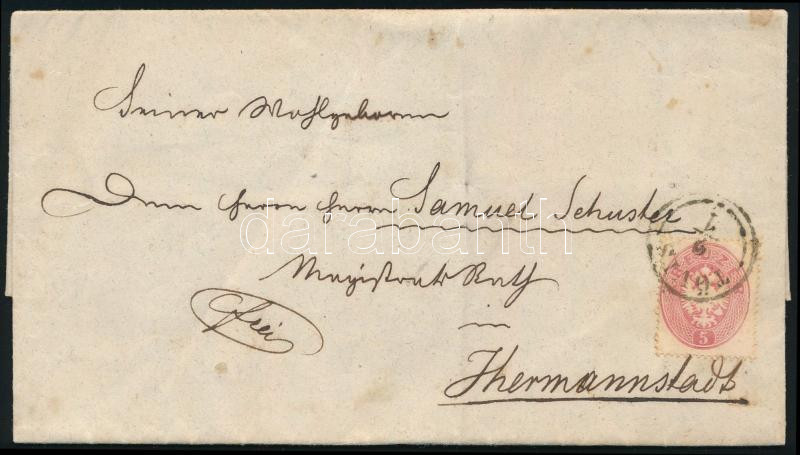 Seiner Wohlgeboren
Dem Herrn Herrn Samuel Schuster
Magistrats Rath
frei
in
Hermannstadt
5
darabanth